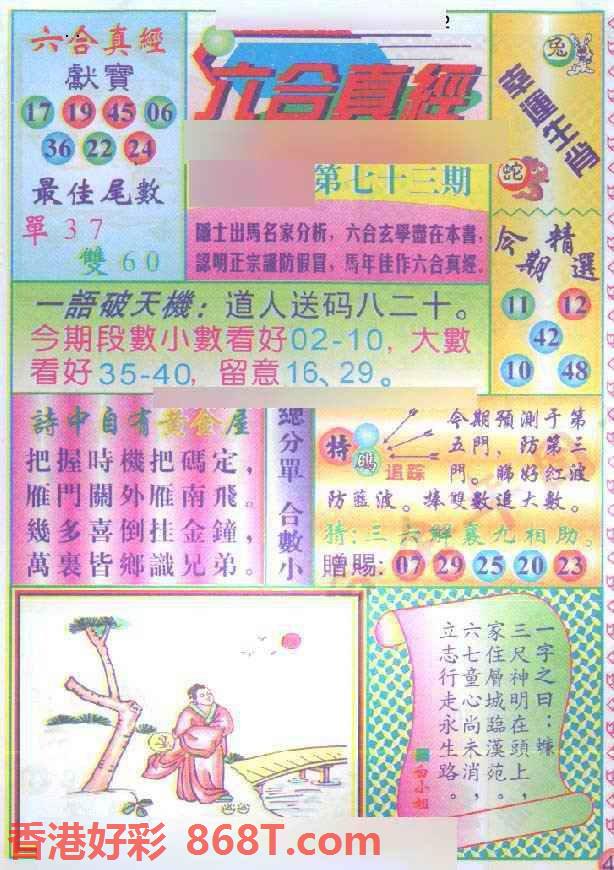 六合真經
獻寶
17 19 45 06
36 22 24
最佳尾數
單 3 7
雙 6 0
六合真經
第七十三期
隱士出馬名家分析，六合玄學盡在本書，
認明正宗謹防假冒，馬年佳作六合真經。
兔
蛇
今期精選
11 12
42
10 48
一語破天機：道人送码八二十。
今期段數小數看好02-10，大數
看好35-40，留意16、29。
詩中自有黃金屋
把握時機把碼定，
雁門關外雁南飛。
幾多喜倒挂金鐘，
萬裏皆鄉識兄弟。
總分單 合數小
特碼
追踪
今期預測于第
五門，防第三
門。睇好紅波
防藍波。捧雙數追大數。
猜：三六解襄九相助。
贈賜：07 29 25 20 23
一字之曰：
三尺神明在頭上，
家住層城臨漢苑。
六七童心尚未消，
立志行走永生路。
白小姐
香港好彩 868T.com
4